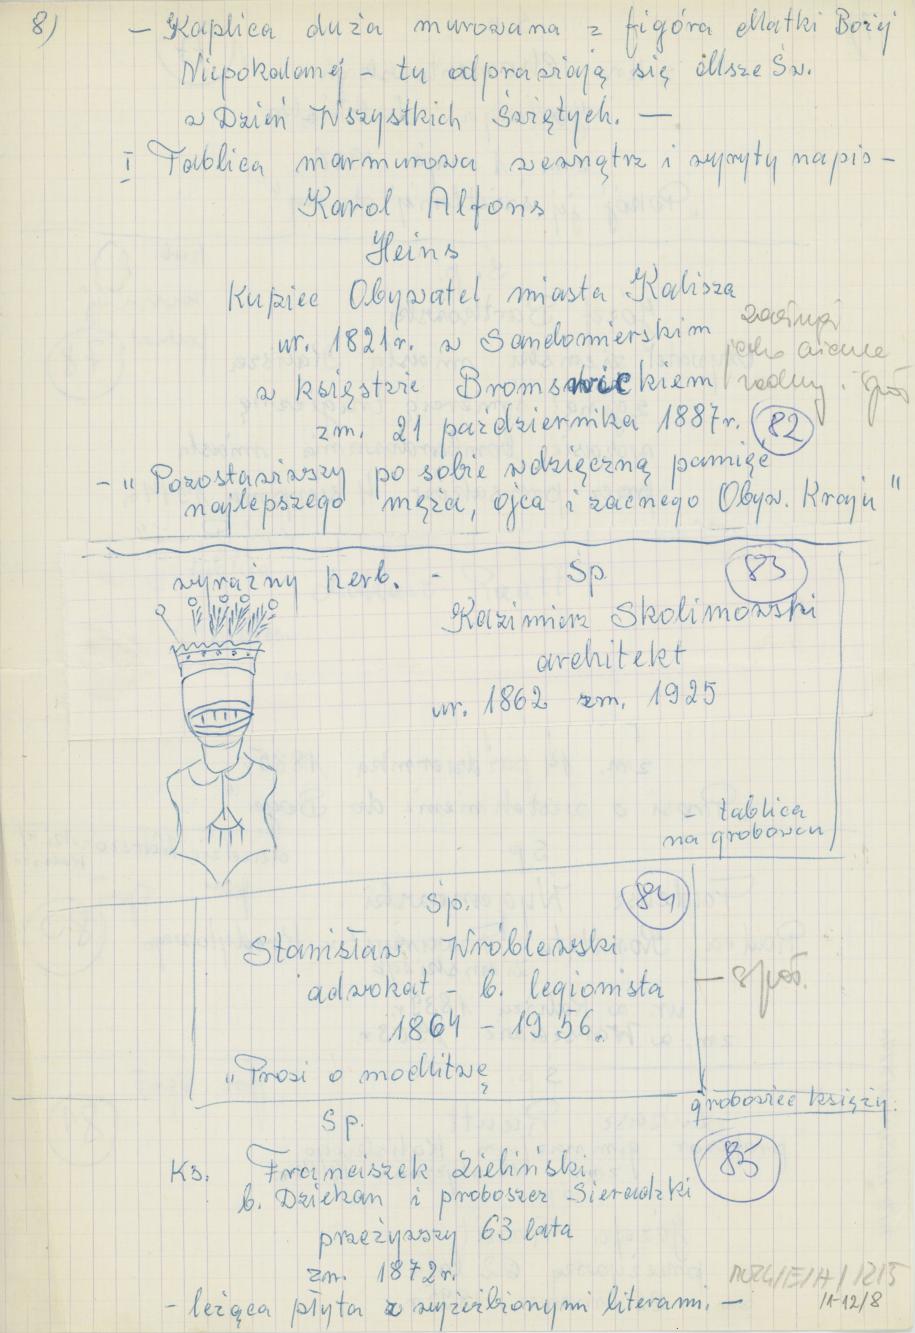 8)
- Kaplica duża murowana z figóra Matki Bożej
Niepokalanej - tu odprawiają się Msze Św.
w Dzień Wszystkich Świętych. -
I Tablica marmurowa wewnątrz i wyryty napis -
Karol Alfons
Heins
Kupiec Obywatel miasta Kalisza
ur. 1821r. w Sandomierskim
w księstwie Bromswickiem
radny i społ
zm. 21 października 1887r. 82
- "Pozostawiwszy po sobie wdzięczną pamięć
najlepszego męża, ojca i zacnego Obyw. Kraju"
wyraźny herb. - Śp 83
Kazimierz Skolimowski
architekt
ur. 1862 zm. 1925
- tablica
na grobowcu
Śp. 84
Stanisław Wróblewski
adwokat - b. legionista
- społ.
1864 - 1956.
"Prosi o modlitwę
grobowiec księży.
Śp.
85
Ks. Franciszek Zieliński
b. Dziekan i proboszcz Sieradzki
przeżywszy 63 lata
zm. 1872r.
MOZK/E/A/1215
/1-12/8
- leżąca płyta z wyżeibionymi literami. -